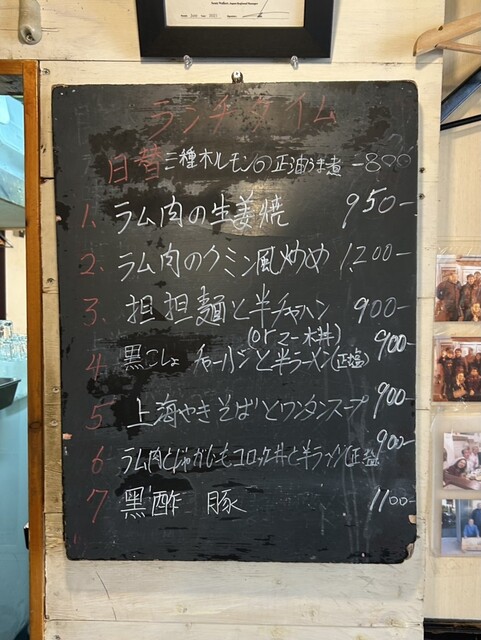 ランチタイム
日替 三種ホルモンの正油うま煮 -800
1. ラム肉の生姜焼 950-
2. ラム肉のクミン風炒め 1200-
3. 担担麺と半チャーハン 900-
(or マーボ丼)
4 黒こしょチャーハンと半ラーメン(正塩) 900-
5 上海やきそばとワンタンスープ 900
6 ラム肉とじゃがいもコロッケ丼と半ラーメン(正塩 900-
7 黒酢 豚 1100-